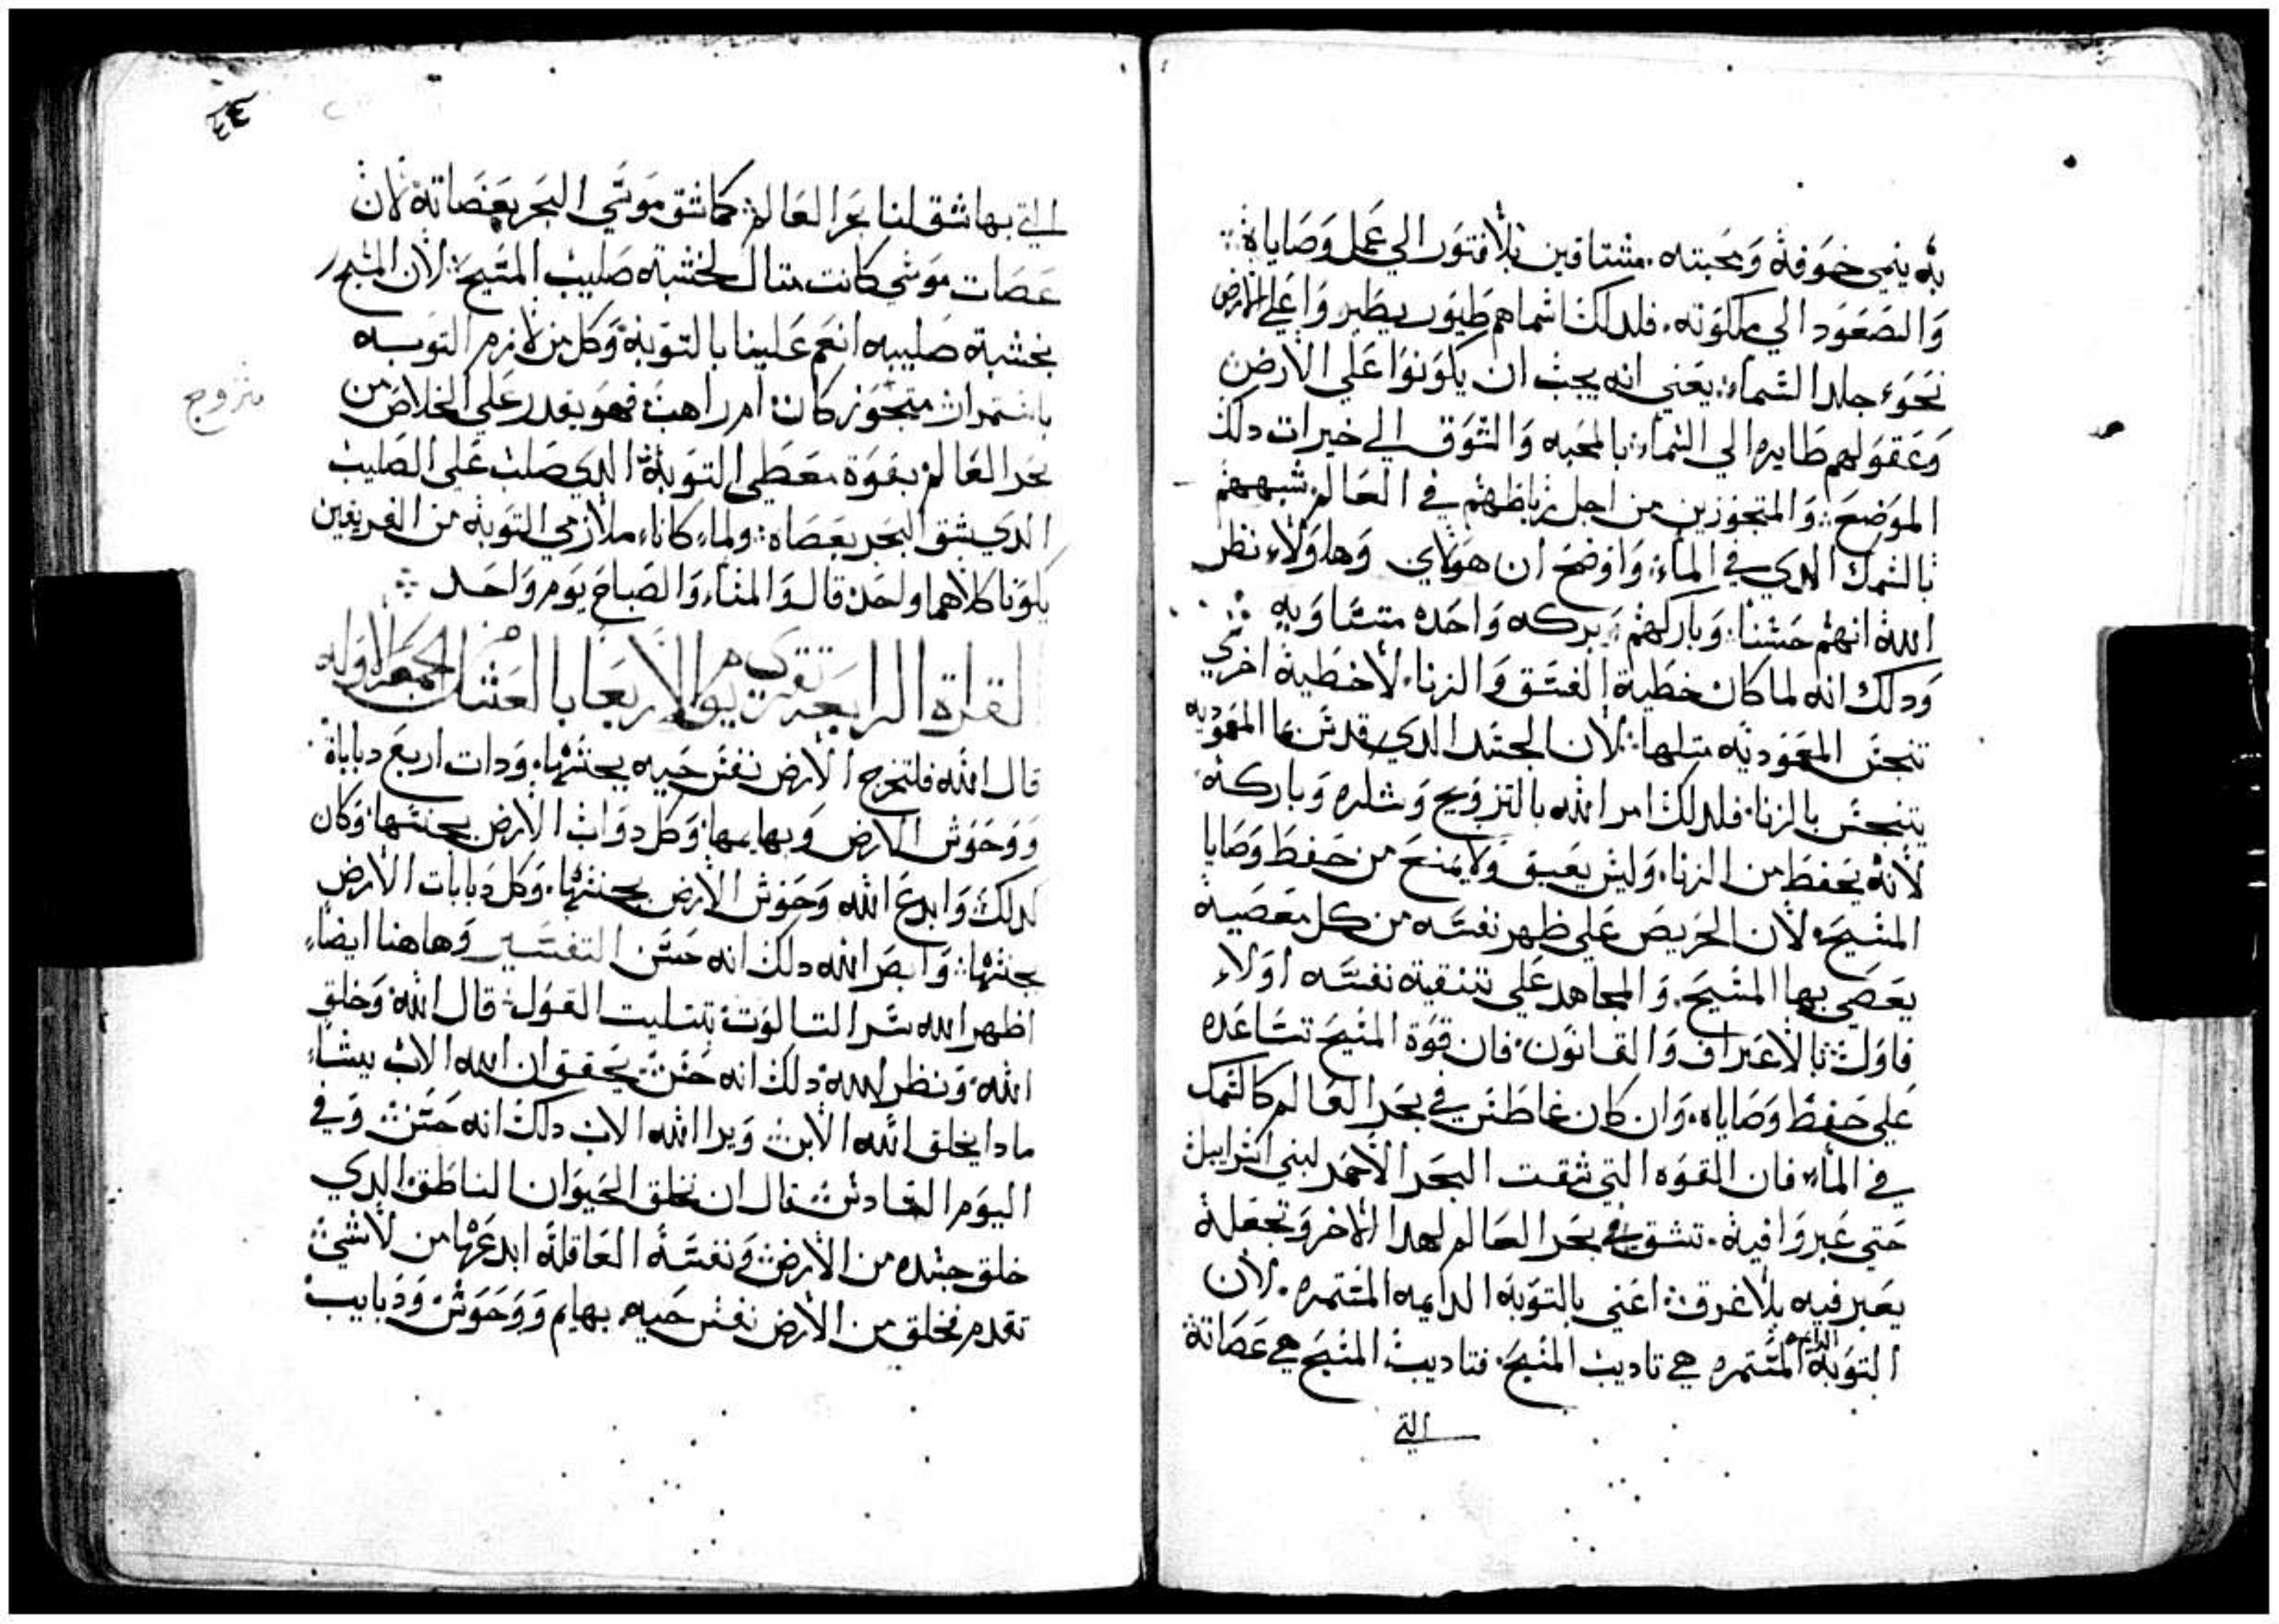 به ينمي خوفه ومحبته. مشتاقين بلا فتور الي عمل وصاياه
والصعود الي ملكوته. فلدلك اسماهم طيور يطيروا علي الارض
نحو جلد السماء. يعني انه يجب ان يكونوا علي الارض
وعقولهم طايره الي السماء بالمحبه والشوق الي خيرات دلك
الموضع. والمتجوزين من اجل رباطهم في العالم شبههم
بالسمك الدي في الماء. واوضح ان هولاي وهاولاء نظر
الله انهم حسنا. وباركهم بركه واحده متساويه
ودلك انه لما كان خطية الفسق والزنا. لاخطية اخري
تنجس المعموديه متلها. لان الجسد الدي قدس بما المعموديه
يتنجس بالزنا. فلدلك امر الله بالتزويج وباركه
لانه يحفظ من الزنا. وليس يعيق ولا يمنع من حفظ وصايا
المسيح. لان الحريص علي طهر نفسه من كل معصية
يعصي بها المسيح. والمجاهد علي تنقية نفسه اولاء
فاول بالاعتراف والقانون. فان قوة المسيح تساعده
علي حفظ وصاياه. وان كان غاطس في بحر العالم كالسمك
في الماء فان القوه التي شقت البحر الاحمر لبني اسراييل
حتي عبروا فيه. تشق بحر العالم لهدا الاخر وتجعله
يعبر فيه بلا غرق. اعني بالتوبه الدايمه المستمره. لان
التوبة الدايمه المستمره هي تاديب المسيح. فتاديب المسيح هي عصاته
التي
٤٤
التي بها شق لنا بحر العالم كما شق موسي البحر بعصاته لان
عصات موسي كانت متال لخشبة صليب المسيح. لان المسيح
بخشبة صليبه انعم علينا بالتوبة وكل من لازم التوبه
باستمرار متجوز كان ام راهب فهو يقدر علي الخلاص من
متزوج
بحر العالم بقوة معطي التوبة الدي صلب علي الصليب
الدي شق البحر بعصاه. ولما كانا ملازمي التوبه من الفريقين
يكونا كلاهما واحد. قال والمساء والصباح يوم واحد
القراة الرابعة تقري يوم الاربعا بالعشا من الجمعه الاوله
قال الله فلتخرج الارض نفس حيه بجنسها. ودات اربع دبابات
ووحوش الارض وبهايمها. وكل دواب الارض بجنسها وكان
كدلك. وابدع الله وحوش الارض بجنسها. وكل دبابات الارض
بجنسها. وابصر الله دلك انه حسن التفسير وهاهنا ايضاء
اظهر الله سر التالوت بتتليت القول. قال الله وخلق
الله. ونظر الله دلك انه حسن. يحقق ان الله الاب يشاء
مادا يخلق الله الابن ويرا الله الاب دلك انه حسن وفي
اليوم السادس قال ان نخلق الحيوان الناطق الدي
خلق جسده من الارض ونفسه العاقلة ابدعها من لا شي
تقدم فخلق من الارض نفس حيه. بهايم ووحوش ودبابيب